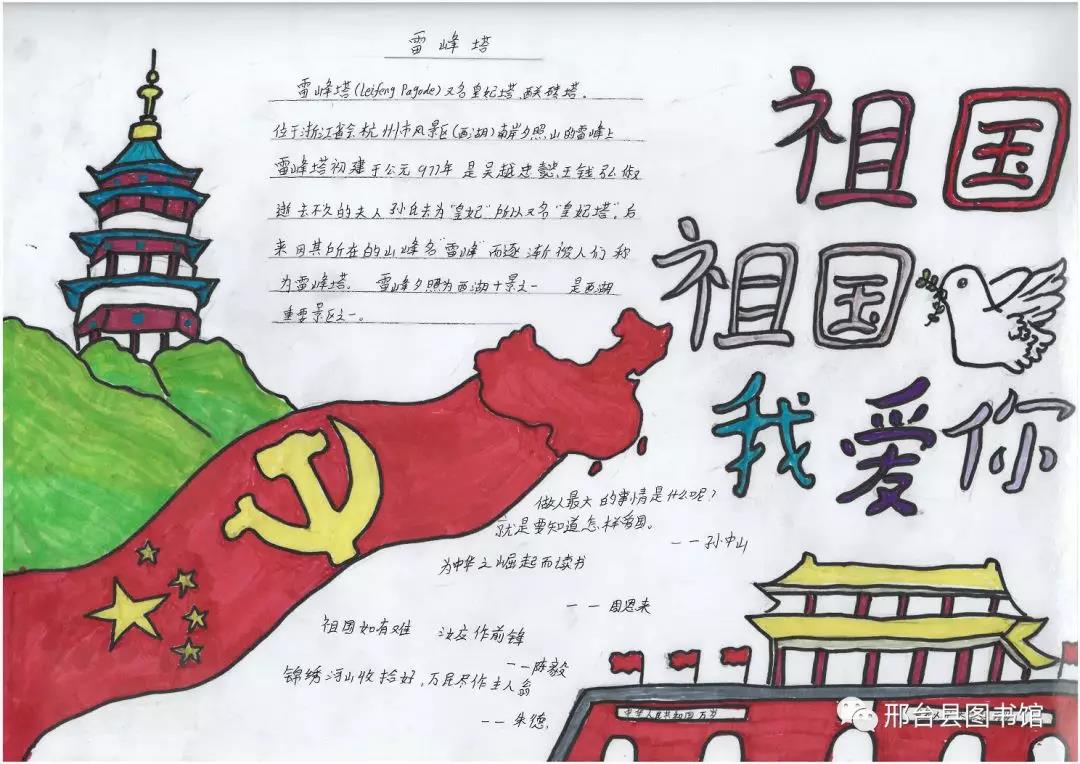 雷峰塔
雷峰塔(Leifeng Pagode)又名皇妃塔、西关砖塔,
位于浙江省会杭州市风景区(西湖)南岸夕照山的雷峰上
雷峰塔初建于公元977年 是吴越忠懿王钱弘俶
逝去不久的夫人孙氏去为"皇妃"所以又名"皇妃塔",后
来因其所在的山峰名"雷峰"而逐渐被人们称
为雷峰塔. 雷峰夕照为西湖十景之一 是西湖
重要景区之一。
祖国
祖国
我爱你
做人最大的事情是什么呢?
就是要知道怎样爱国。
——孙中山
为中华之崛起而读书
——周恩来
祖国如有难 汝应作前锋
——陈毅
锦绣河山收拾好,万民尽作主人翁
——朱德,
中华人民共和国万岁
邢台县图书馆